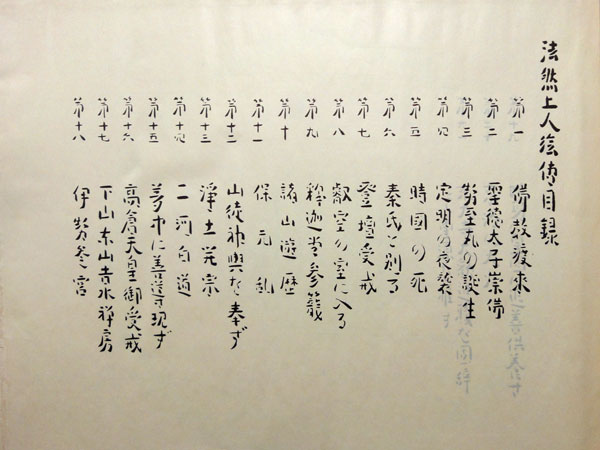 法然上人絵傳目録
第一 佛教渡来
第二 聖徳太子崇佛
第三 勢至丸の誕生
第四 定明の夜襲
第五 時國の死
第六 秦氏と別る
第七 登壇受戒
第八 叡空の室に入る
第九 釋迦堂参籠
第十 諸山遊歴
第十一 保元乱
第十二 山徒神輿を奉ず
第十三 淨土開宗
第十四 二河白道
第十五 夢中に善導現ず
第十六 高倉天皇御受戒
第十七 下山東山吉水禅房
第十八 伊勢参宮